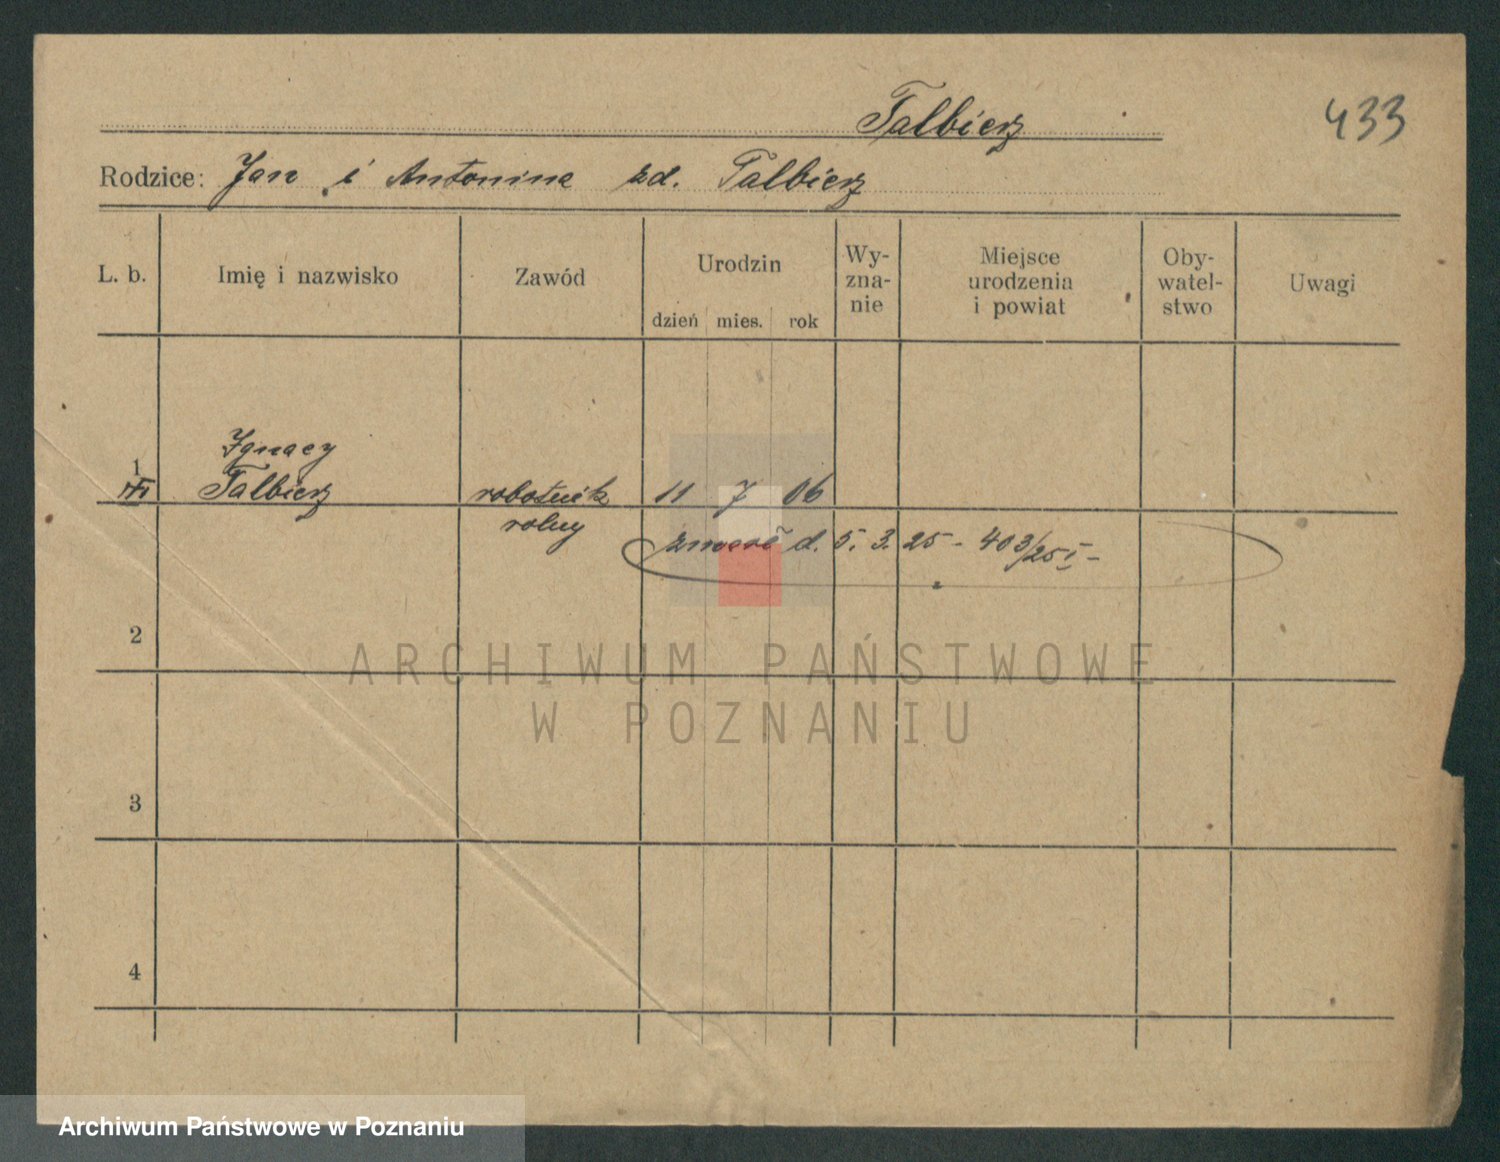 Talbierz
433
Rodzice: Jan i Antonina zd. Talbierz
L. b. Imię i nazwisko Zawód Urodzin Wy-zna-nie Miejsce urodzenia i powiat Oby-watel-stwo Uwagi
dzień mies. rok
Ignacy
1
Talbierz robotnik 11 7 06
rolny
d. 5. 3. 25 - 403/25 I -
2
ARCHIWUM PAŃSTWOWE
W POZNANIU
3
4
Archiwum Państwowe w Poznaniu